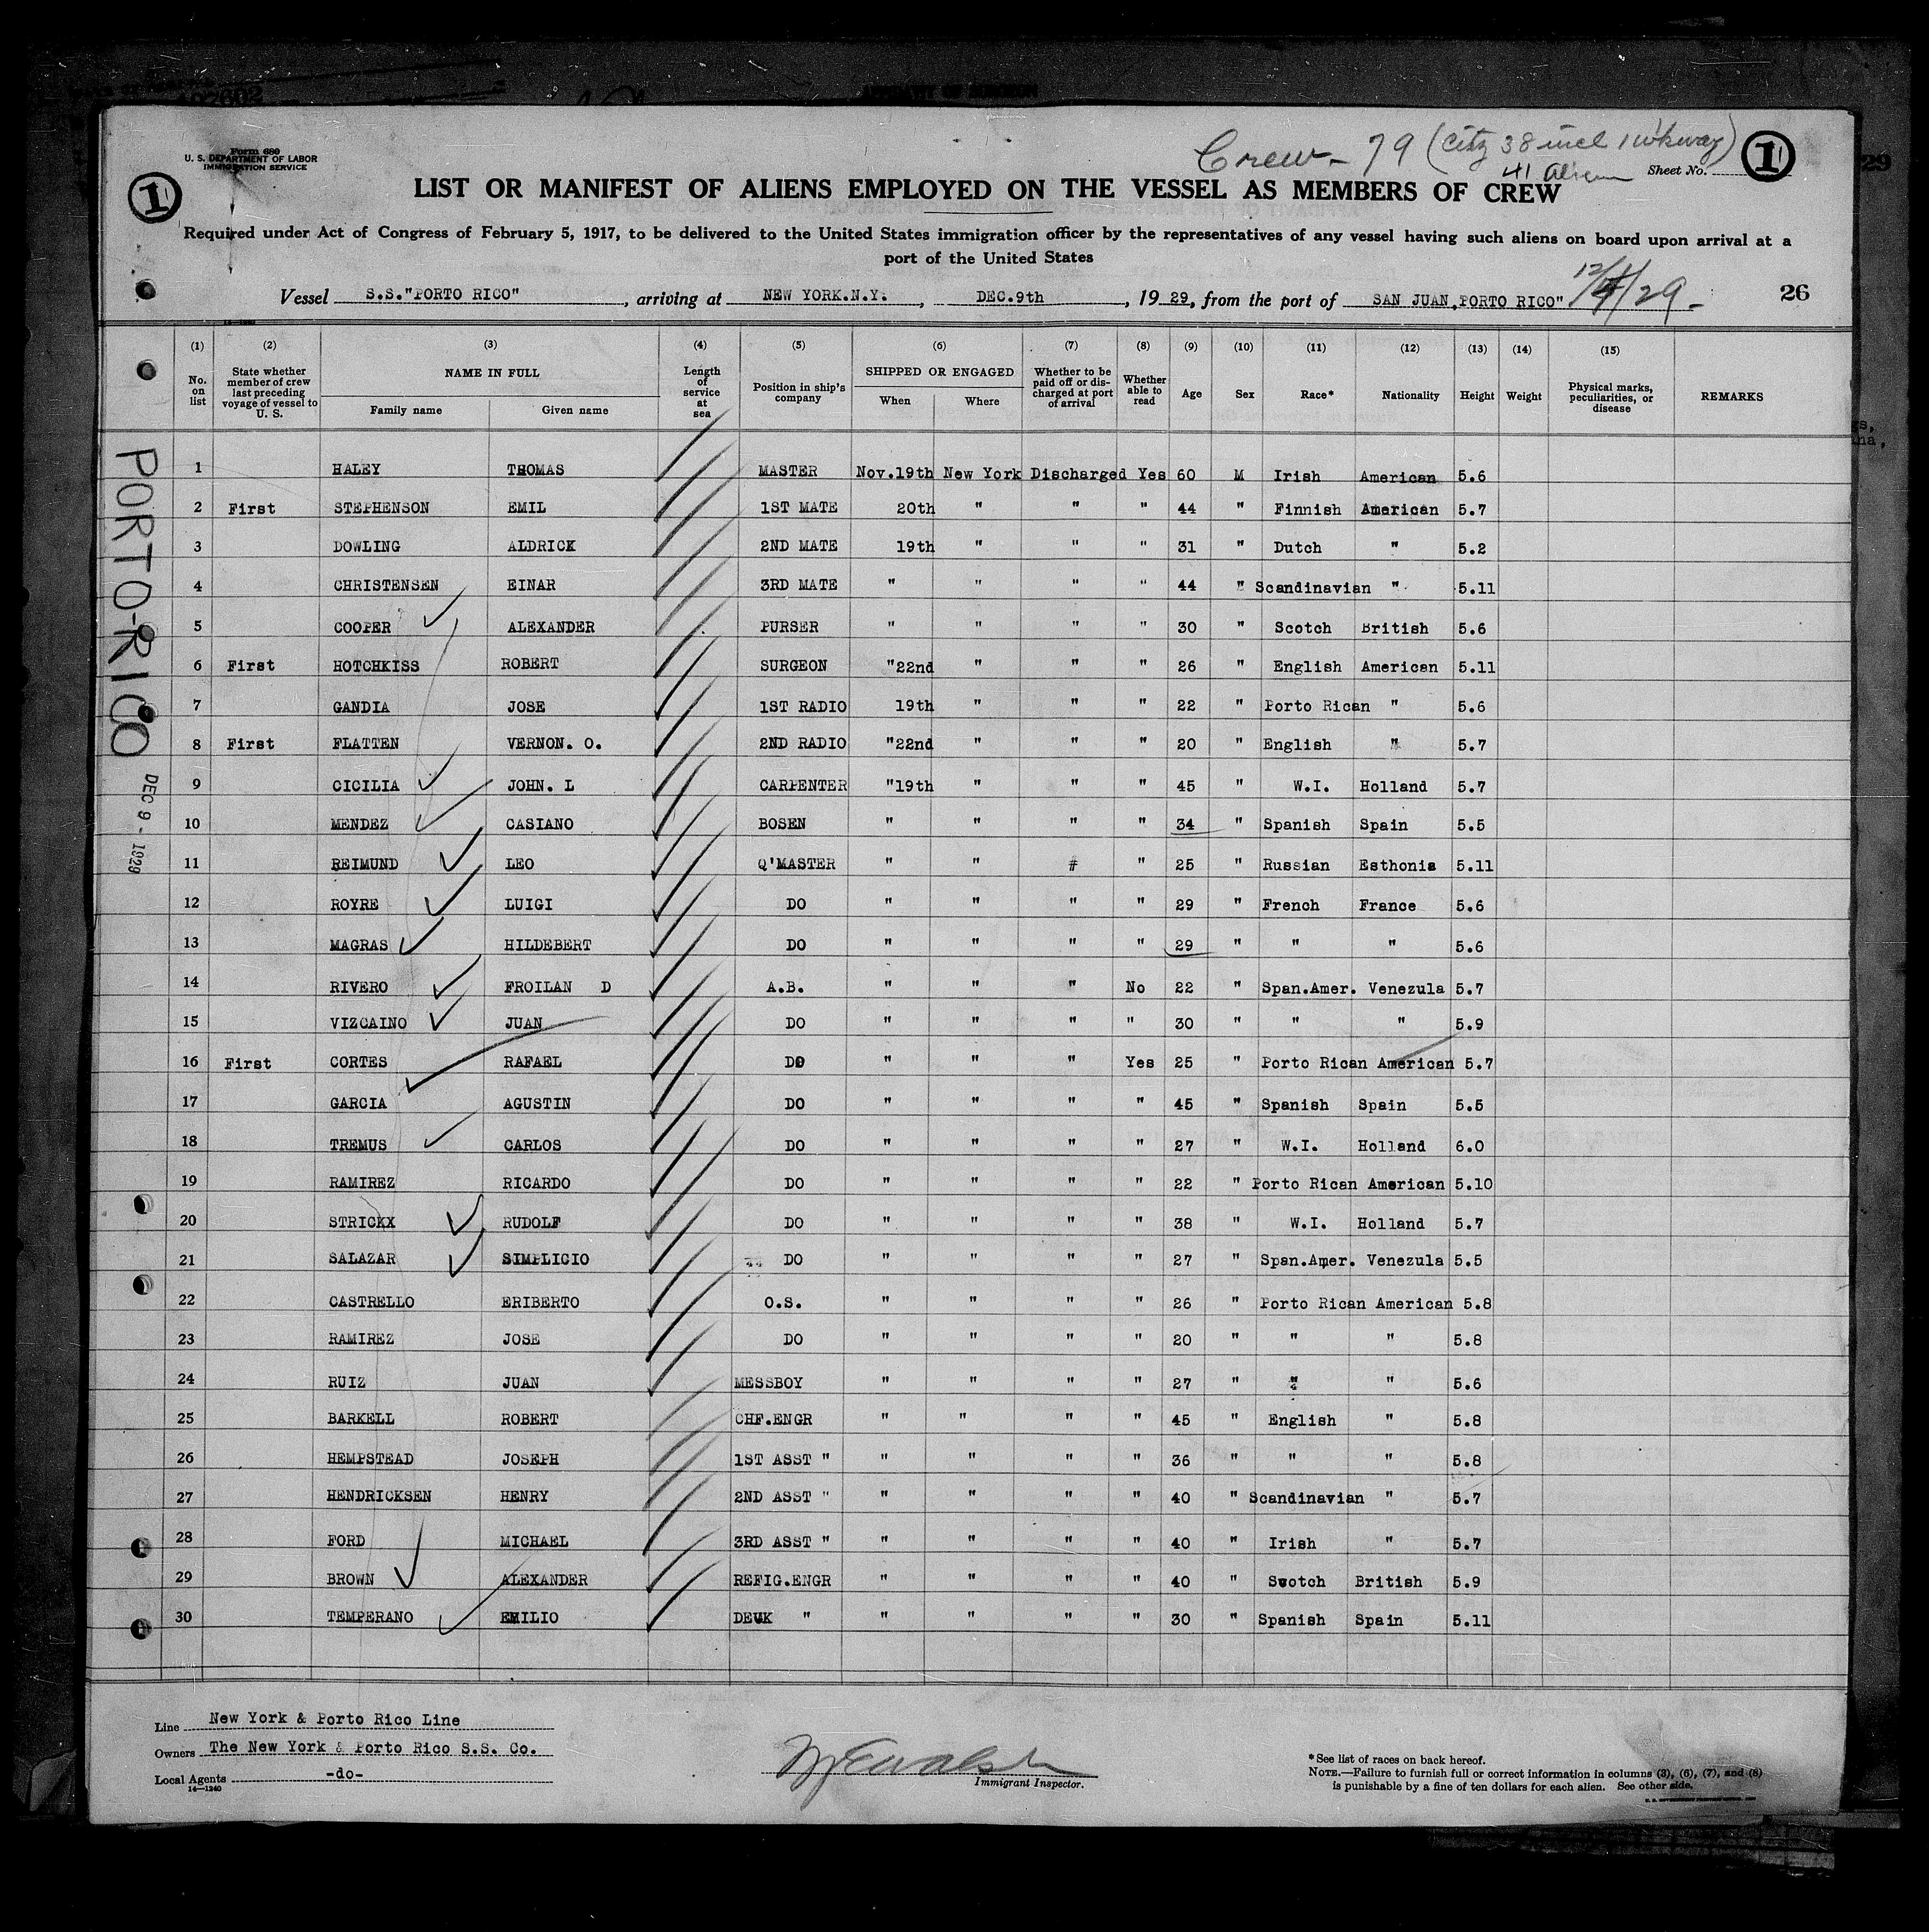 Form 680
U. S. DEPARTMENT OF LABOR
IMMIGRATION SERVICE
Crew - 79 (City 38 incl 1 wkway)
41 Alien
Sheet No. 1
1
LIST OR MANIFEST OF ALIENS EMPLOYED ON THE VESSEL AS MEMBERS OF CREW
Required under Act of Congress of February 5, 1917, to be delivered to the United States immigration officer by the representatives of any vessel having such aliens on board upon arrival at a
port of the United States
Vessel S.S."PORTO RICO", arriving at NEW YORK.N.Y., DEC.9th, 1929, from the port of SAN JUAN,PORTO RICO" 12/4/29 - 26
(1) (2) (3) (4) (5) (6) (7) (8) (9) (10) (11) (12) (13) (14) (15)
No. on list State whether member of crew last preceding voyage of vessel to U. S. NAME IN FULL Family name Given name Length of service at sea Position in ship's company SHIPPED OR ENGAGED When Where Whether to be paid off or discharged at port of arrival Whether able to read Age Sex Race* Nationality Height Weight Physical marks, peculiarities, or disease REMARKS
1 HALEY THOMAS MASTER Nov.19th New York Discharged Yes 60 M Irish American 5.6
2 First STEPHENSON EMIL 1ST MATE 20th " " " 44 " Finnish American 5.7
3 DOWLING ALDRICK 2ND MATE 19th " " " 31 " Dutch " 5.2
4 CHRISTENSEN EINAR 3RD MATE " " " " 44 " Scandinavian " 5.11
5 COOPER ALEXANDER PURSER " " " " 30 " Scotch British 5.6
6 First HOTCHKISS ROBERT SURGEON "22nd " " " 26 " English American 5.11
7 GANDIA JOSE 1ST RADIO 19th " " " 22 " Porto Rican " 5.6
8 First FLATTEN VERNON. O. 2ND RADIO "22nd " " " 20 " English " 5.7
9 CICILIA JOHN. L CARPENTER "19th " " " 45 " W.I. Holland 5.7
10 MENDEZ CASIANO BOSEN " " " " 34 " Spanish Spain 5.5
11 REIMUND LEO Q'MASTER " " # " 25 " Russian Esthonia 5.11
12 ROYRE LUIGI DO " " " " 29 " French France 5.6
13 MAGRAS HILDEBERT DO " " " " 29 " " " 5.6
14 RIVERO FROILAN D A.B. " " " No 22 " Span.Amer. Venezula 5.7
15 VIZCAINO JUAN DO " " " " 30 " " " 5.9
16 First CORTES RAFAEL DO " " " Yes 25 " Porto Rican American 5.7
17 GARCIA AGUSTIN DO " " " " 45 " Spanish Spain 5.5
18 TREMUS CARLOS DO " " " " 27 " W.I. Holland 6.0
19 RAMIREZ RICARDO DO " " " " 22 " Porto Rican American 5.10
20 STRICKX RUDOLF DO " " " " 38 " W.I. Holland 5.7
21 SALAZAR SIMPLICIO DO " " " " 27 " Span.Amer. Venezula 5.5
22 CASTRELLO ERIBERTO O.S. " " " " 26 " Porto Rican American 5.8
23 RAMIREZ JOSE DO " " " " 20 " " " 5.8
24 RUIZ JUAN MESSBOY " " " " 27 " " " 5.6
25 BARKELL ROBERT CHF.ENGR " " " " 45 " English " 5.8
26 HEMPSTEAD JOSEPH 1ST ASST " " " " " 36 " " " 5.8
27 HENDRICKSEN HENRY 2ND ASST " " " " " 40 " Scandinavian " 5.7
28 FORD MICHAEL 3RD ASST " " " " " 40 " Irish " 5.7
29 BROWN ALEXANDER REFIG.ENGR " " " " 40 " Scotch British 5.9
30 TEMPERANO EMILIO DEUK " " " " " 30 " Spanish Spain 5.11
PORTO-RICO
DEC 9 - 1929
Line New York & Porto Rico Line
Owners The New York & Porto Rico S.S. Co.
Local Agents -do-
14-1240
Immigrant Inspector.
*See list of races on back hereof.
NOTE.—Failure to furnish full or correct information in columns (3), (6), (7), and (8)
is punishable by a fine of ten dollars for each alien. See other side.
29